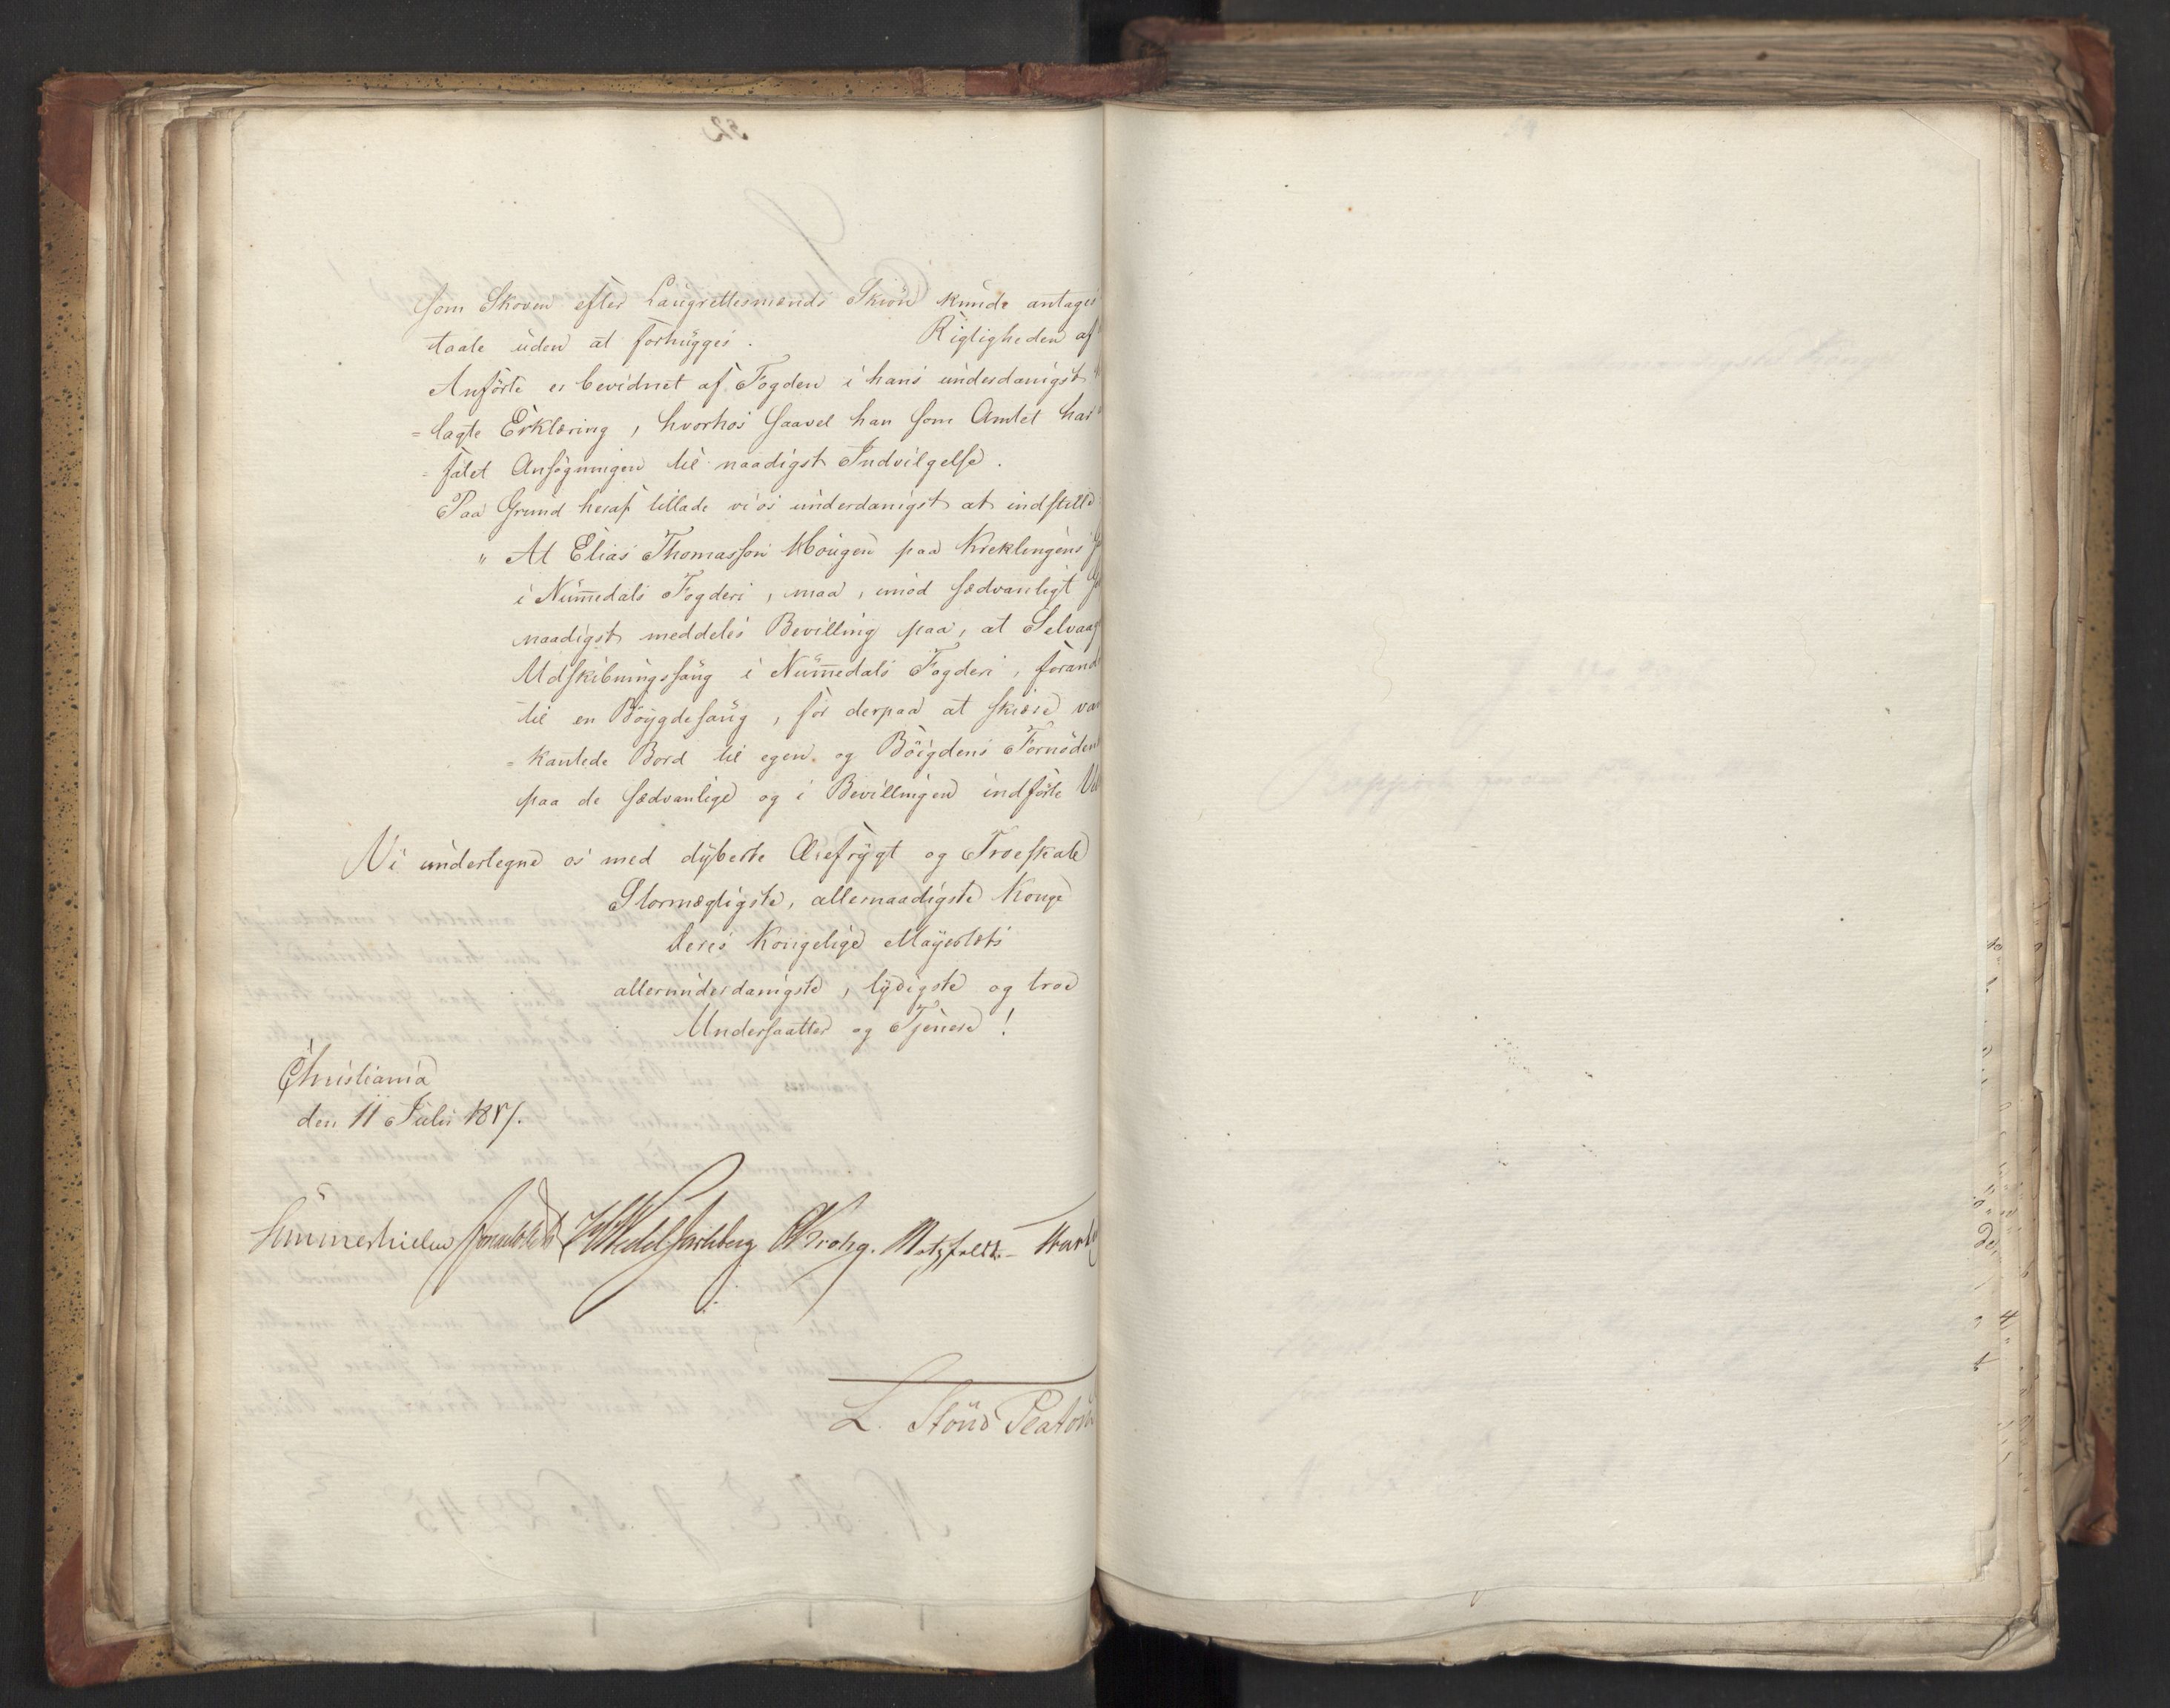 som Skoven efter Laugrettesmænds Skiön kunde antages
taale uden at forhugges. Rigtigheden af
Anförte er bevidnet af Fogden i hans underdanigst
=lagte Erklæring, hvorhos saavel han som Amtet har
=falet Ansøgningen til naadigst Indvilgelse.
Paa Grund heraf tillade vi os underdanigst at indstille
" At Elias Thomassön Mougen paa Kreklingens
i Nummedals Fogderi, maa, imod sædvanligt
naadigst meddeles Bevilling paa, at Selvaag
Udskibningssaug i Nummedals Fogderi, forand
til en Böygdesaug, for derpaa at skiære
=kantede Bord til egen og Böigdens Fornöden
paa de sædvanlige og i Bevillingen indförte
Vi underlegne os med dybeste Ærefrygt og Troeskab
Stormægtigste, allernaadigste Konge
Deres Kongelige Mayestæts
allerunderdanigste, lydigste og troe
Undersaatter og Tjenere!
Christiania
den 11 Julii 1817.
Sommerhielm HWedel Jarlsberg CKrohg. Motzfeldt.
L. Stoud Platou